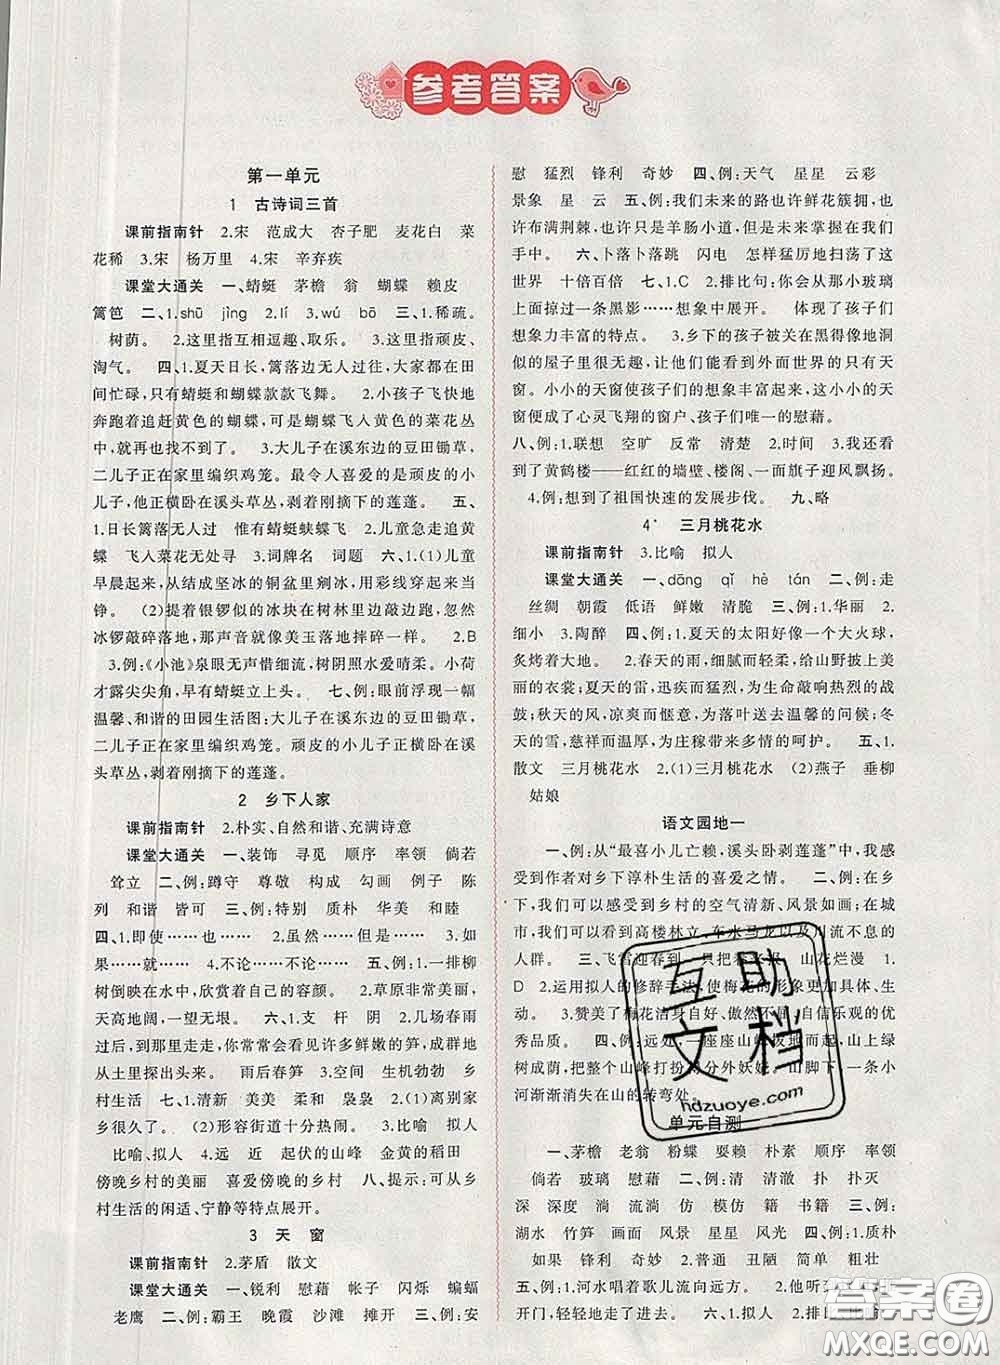 参考答案
第一单元
1 古诗词三首
课前指南针 2.宋 范成大 杏子肥 麦花白 菜
花稀 3.宋 杨万里 4.宋 辛弃疾
课堂大通关 一、蜻蜓 茅檐 翁 蝴蝶 赖皮
篱笆 二、1.shū jìng 2.lí 3.wú bō 三、1.稀疏。
树荫。 2.这里指互相逗趣、取乐。 3.这里指顽皮、
淘气。 四、1.夏天日长，篱落边无人过往，大家都在田
间忙碌，只有蜻蜓和蝴蝶款款飞舞。 2.小孩子飞快地
奔跑着追赶黄色的蝴蝶，可是蝴蝶飞入黄色的菜花丛中
就再也找不到了。 3.大儿子在溪东边的豆田锄草，
二儿子正在家里编织鸡笼。 最令人喜爱的是顽皮的小
儿子，他正横卧在溪头草丛，剥着刚摘下的莲蓬。 五、
1.日长篱落无人过 惟有蜻蜓蛱蝶飞 2.儿童急走追黄
蝶 飞入菜花无处寻 3.词牌名 词题 六、1.(1)儿童
早晨起来，从结成坚冰的铜盆里剜冰，用彩线穿起来当
铮。 (2)提着银锣似的冰块在树林里敲边跑，忽然
冰锣敲碎落地，那声音就像美玉落地摔碎一样。 2.B
3.例：《小池》泉眼无声惜细流，树阴照水爱晴柔。 小荷
才露尖尖角，早有蜻蜓立上头。 七、例：眼前浮现一幅
温馨、和谐的田园生活图：大儿子在溪东边的豆田锄草，
二儿子正在家里编织鸡笼。 顽皮的小儿子正横卧在溪头
草丛，剥着刚摘下的莲蓬。
2 乡下人家
课前指南针 2.朴实、自然和谐、充满诗意
课堂大通关 一、装饰 寻觅 顺序 率领 倘若
耸立 二、例：蹲守 尊敬 构成 勾画 例子 陈
列 和谐 皆可 三、例：特别 质朴 华美 和睦
四、1.即使……也…… 2.虽然……但是…… 3.如
果……就…… 4.不论……不论…… 五、例：1.一排柳
树倒映在水中，欣赏着自己的容颜。 2.草原非常美丽，
天高地阔，一望无垠。 六、1.支 杆 阴 2.几场春雨
过后，到那里走走，你常常会看见许多鲜嫩的笋，成群地
从土里探出头来。 雨后春笋 3.空间 生机勃勃 乡
村生活 七、1.清新 美美 柔和 袅袅 2.(1)离家
乡很久了。 (2)形容街道十分热闹。 3.比喻 拟人
比喻、拟人 4.远 近 起伏的山峰 金黄的稻田
傍晚乡村的美丽 喜爱傍晚的乡村 八、提示：可抓住乡
村生活的闲适、宁静等特点展开。
3 天 窗
课前指南针 2.茅盾 散文
课堂大通关 一、锐利 慰藉 帐子 闪烁 蝙蝠
老鹰 二、例：霸王 晚霞 沙滩 摊开 三、例：安
慰 猛烈 锋利 奇妙 四、例：天气 星星 云彩
景象 星 云 五、例：我们未来的路也许鲜花簇拥，也
许布满荆棘，也许只是羊肠小道，但命运掌握在我们
手中。 六、卜落卜落跳 闪电 怎样猛厉地扫荡了这
世界 十倍百倍 七、1.C 2.排比句：你会从那小玻璃
上面掠过一条黑影……想象中展开。 体现了孩子们
想象力丰富的特点。 3.乡下的孩子被关在黑得像地洞
似的屋子里很无趣，让他们能看到外面世界的只有天
窗。 小小的天窗使孩子们的想象丰富起来，小小的天
窗便成了心灵飞翔的窗户、孩子们唯一的慰藉。
八、例：1.联想 空旷 反常 清楚 2.时间 3.我还看
到了黄鹤楼——红红的墙壁、楼阁、一面旗子迎风飘扬。
4.例：想到了祖国快速的发展步伐。 九、略
4* 三月桃花水
课前指南针 3.比喻 拟人
课堂大通关 一、dāng qǐ hè tán 二、例：走
丝绸 朝霞 低语 鲜嫩 清脆 三、例：1.华丽 2.
细小 3.陶醉 四、例：1.夏天的太阳好像一个大火球，
炙烤着大地。 2.春天的雨，细腻而轻柔，给山野披上美丽
的衣裳；夏天的雷，迅疾而猛烈，为生命敲响热烈的战
鼓；秋天的风，凉爽而惬意，为落叶送去温馨的问候；冬
天的雪，慈祥而温厚，为庄稼带来多情的呵护。 五、1.
散文 三月桃花水 2.(1)三月桃花水 (2)燕子 垂柳
姑娘
语文园地一
一、例：从“最喜小儿亡赖，溪头卧剥莲蓬”中，我感
受到作者对乡下淳朴生活的喜爱之情。 二、例：在乡
下，我们可以感受到乡村的空气清新、风景如画；在城
市，我们可以看到高楼林立、车水马龙以及川流不息的
人群。 三、飞雪迎春到 只把春来报 山花烂漫 1.
D 2.运用拟人的修辞手法，使梅花的形象更具体、生
动。 3.赞美了梅花洁身自好、傲然不屈、自信乐观的优
秀品质。 四、例：远处，一座座山峰拔地而起，山上绿
树成荫，把整个山峰打扮分外妖娆。 山脚下，一条小
河渐渐消失在山的转弯处。
单元自测
一、茅檐 老翁 粉蝶 耍赖 朴素 顺序 率领
倘若 玻璃 慰藉 二、例：清 清澈 扑 扑灭
深 深度 淌 流淌 仿 模仿 籍 书籍 三、例：
湖水 竹笋 画面 风景 星星 风光 四、例：1.质朴
如果 锋利 奇妙 2.普通 丑陋 简单 粗壮
五、例：1.河水唱着歌儿流向远方。 2.他听
开门，轻轻地走了进去。 六、1.拟人 2.排比
互助文档
hdzuoye.com
答案圈
MXQE.COM